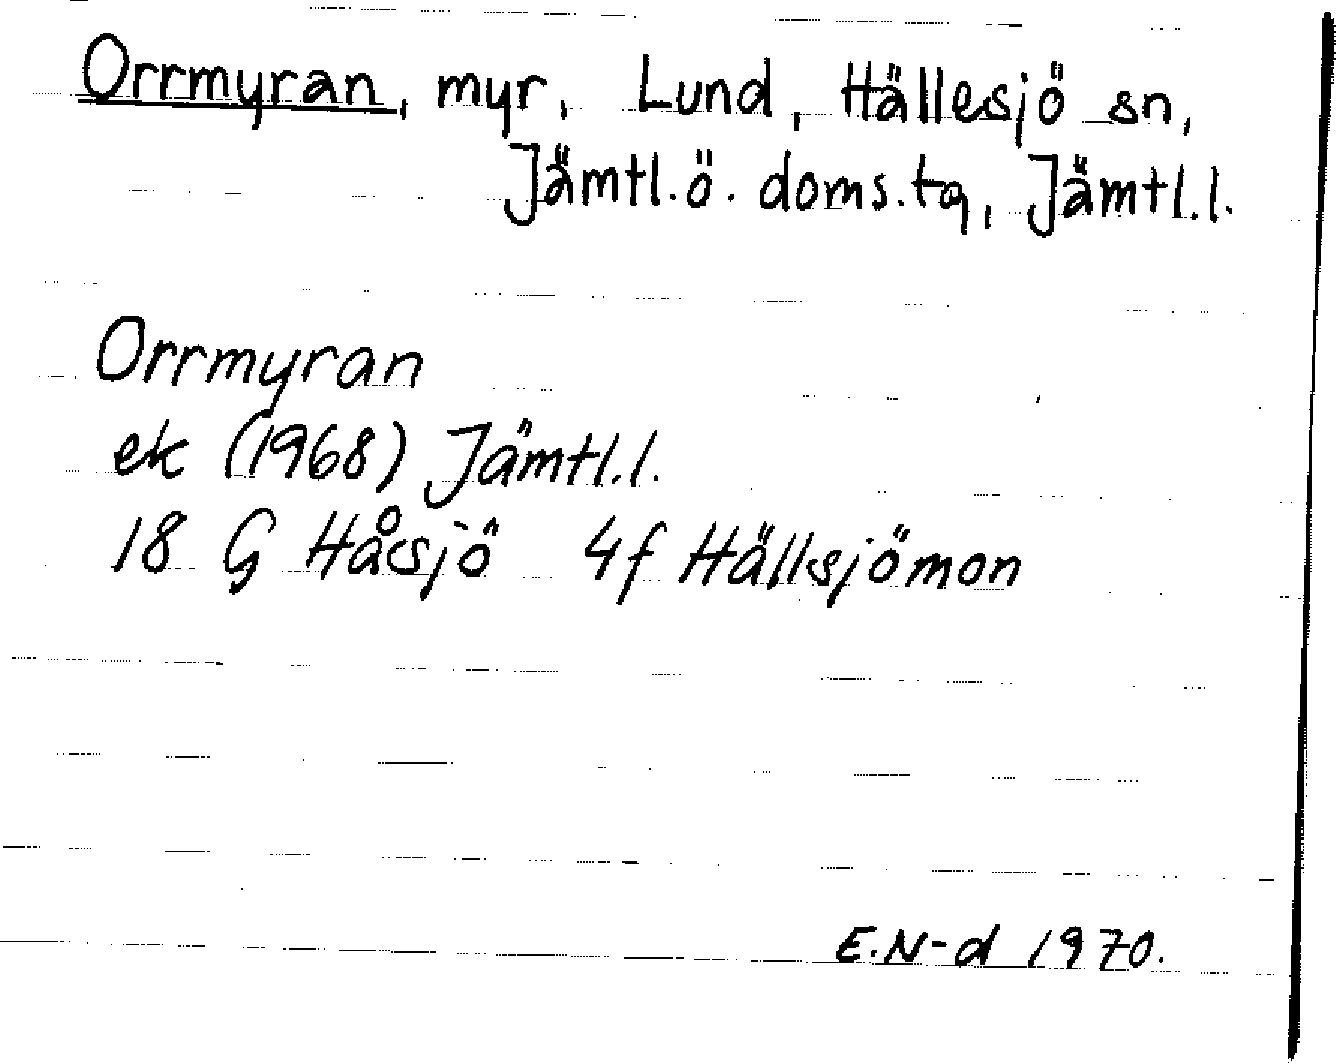 Orrmyran, myr, Lund, Hällesjö sn,
Jämtl.ö. doms.tg, Jämtl.l.
Orrmyran
ek (1968) Jämtl.l.
18 G Håsjö 4f Hällsjömon
E.N-d 1970.